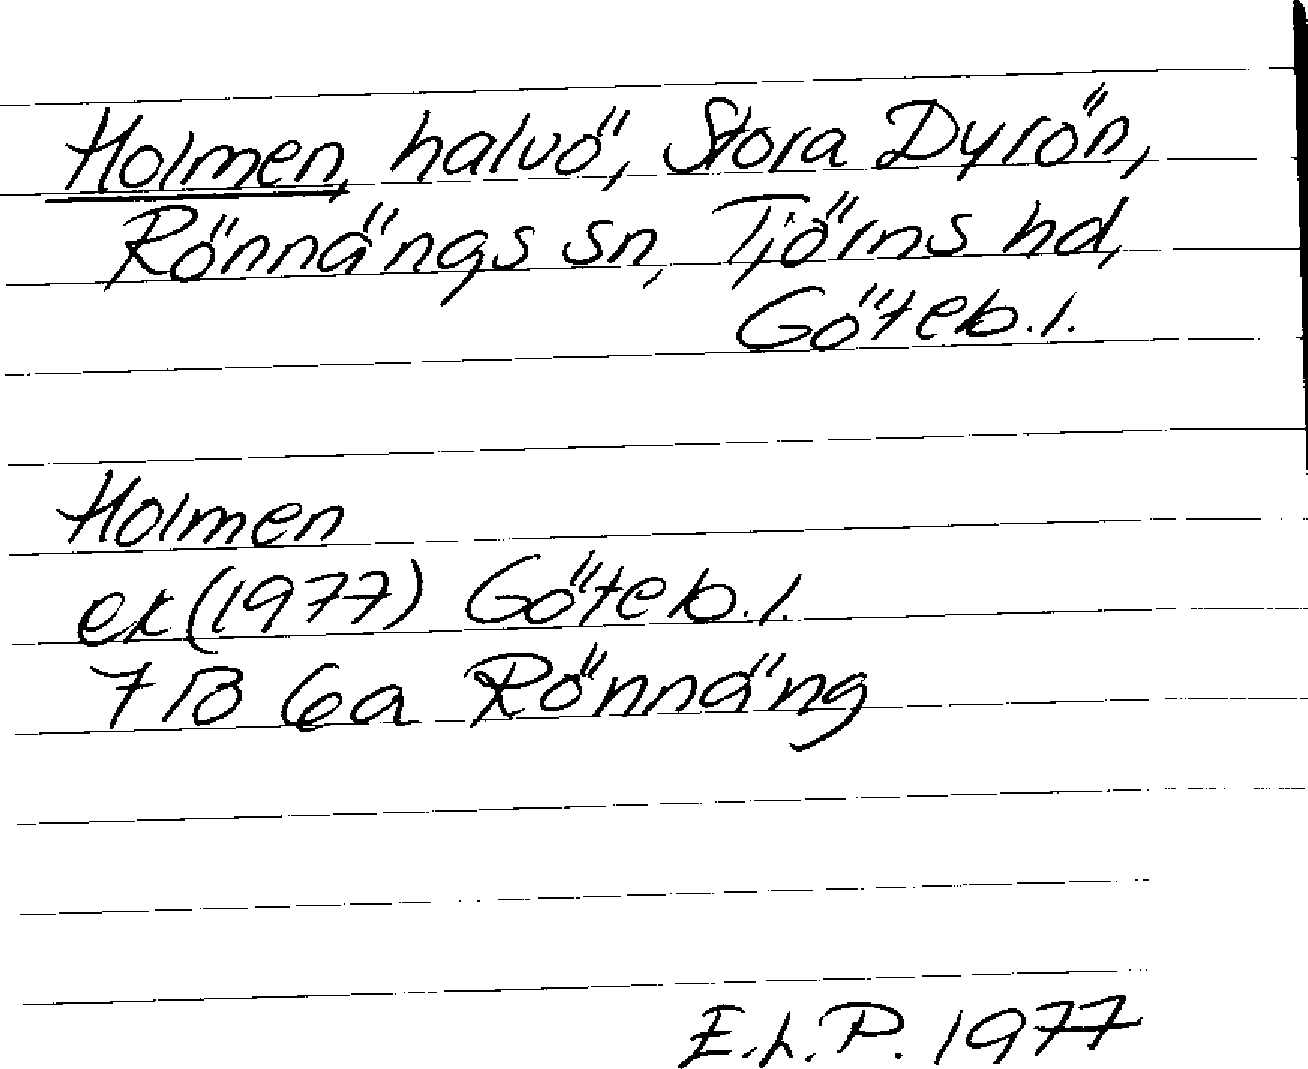 Holmen, halvö, Stora Dyrön,
Rönnängs sn, Tjörns hd,
Göteb.l.
Holmen
ek (1977) Göteb.l.
7B 6a Rönnäng
E.L.P. 1977